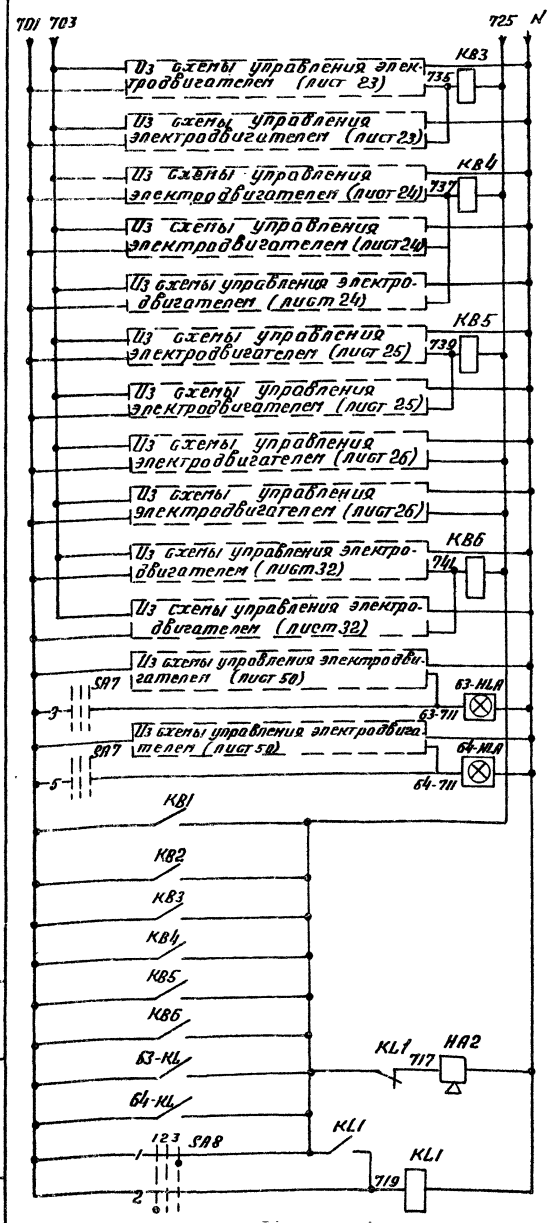 701 703 725 N
КВ3
Из схемы управления элек-
тродвигателем (лист 23)
735
Из схемы управления
электродвигателем (лист 23)
КВ4
Из схемы управления
электродвигателем (лист 24)
737
Из схемы управления
электродвигателем (лист 24)
Из схемы управления электро-
двигателем (лист 24)
КВ5
Из схемы управления
электродвигателем (лист 25)
739
Из схемы управления
электродвигателем (лист 25)
Из схемы управления
электродвигателем (лист 26)
Из схемы управления
электродвигателем (лист 26)
КВ6
Из схемы управления электро-
двигателем (лист 32)
741
Из схемы управления электро-
двигателем (лист 32)
Из схемы управления электродви-
гателем (лист 50)
SA7
63-HLA
3
63-711
Из схемы управления электродвига
телем (лист 50)
SA7
64-HLA
5
64-711
КВ1
КВ2
КВ3
КВ4
КВ5
КВ6
63-KL
KL1 717 HA2
64-KL
1 2 3 SA8
KL1
KL1
1
719
2